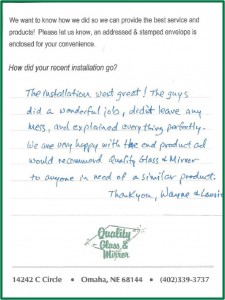 We want to know how we did so we can provide the best service and
products! Please let us know, an addressed & stamped envelope is
enclosed for your convenience.
How did your recent installation go?
The installation went great! The guys
did a wonderful job, didn't leave any
mess, and explained everything perfectly.
We are very happy with the end product and
would recommend Quality Glass & Mirror
to anyone in need of a similar product.
Thank you, Wayne &
Quality
Glass &
Mirror
14242 C Circle • Omaha, NE 68144 • (402)339-3737